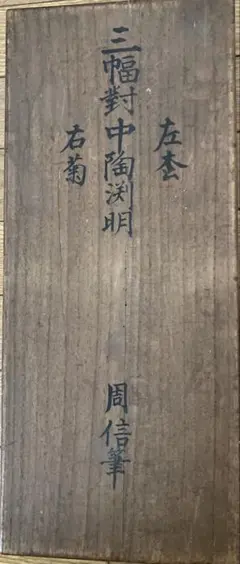 三幅對中陶渕明
左枩
右菊
周信筆